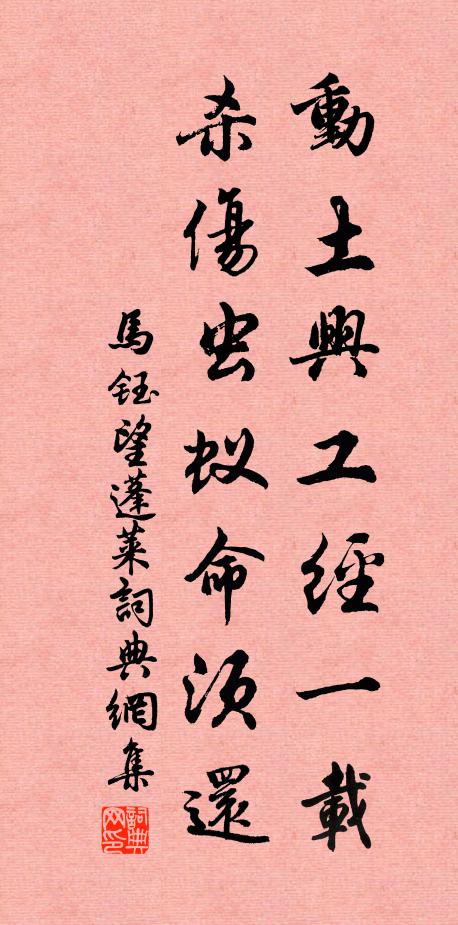 動土興工經一載
杀傷虫蚁命須還
馬鈺望蓬萊詞典網集
詞典网印